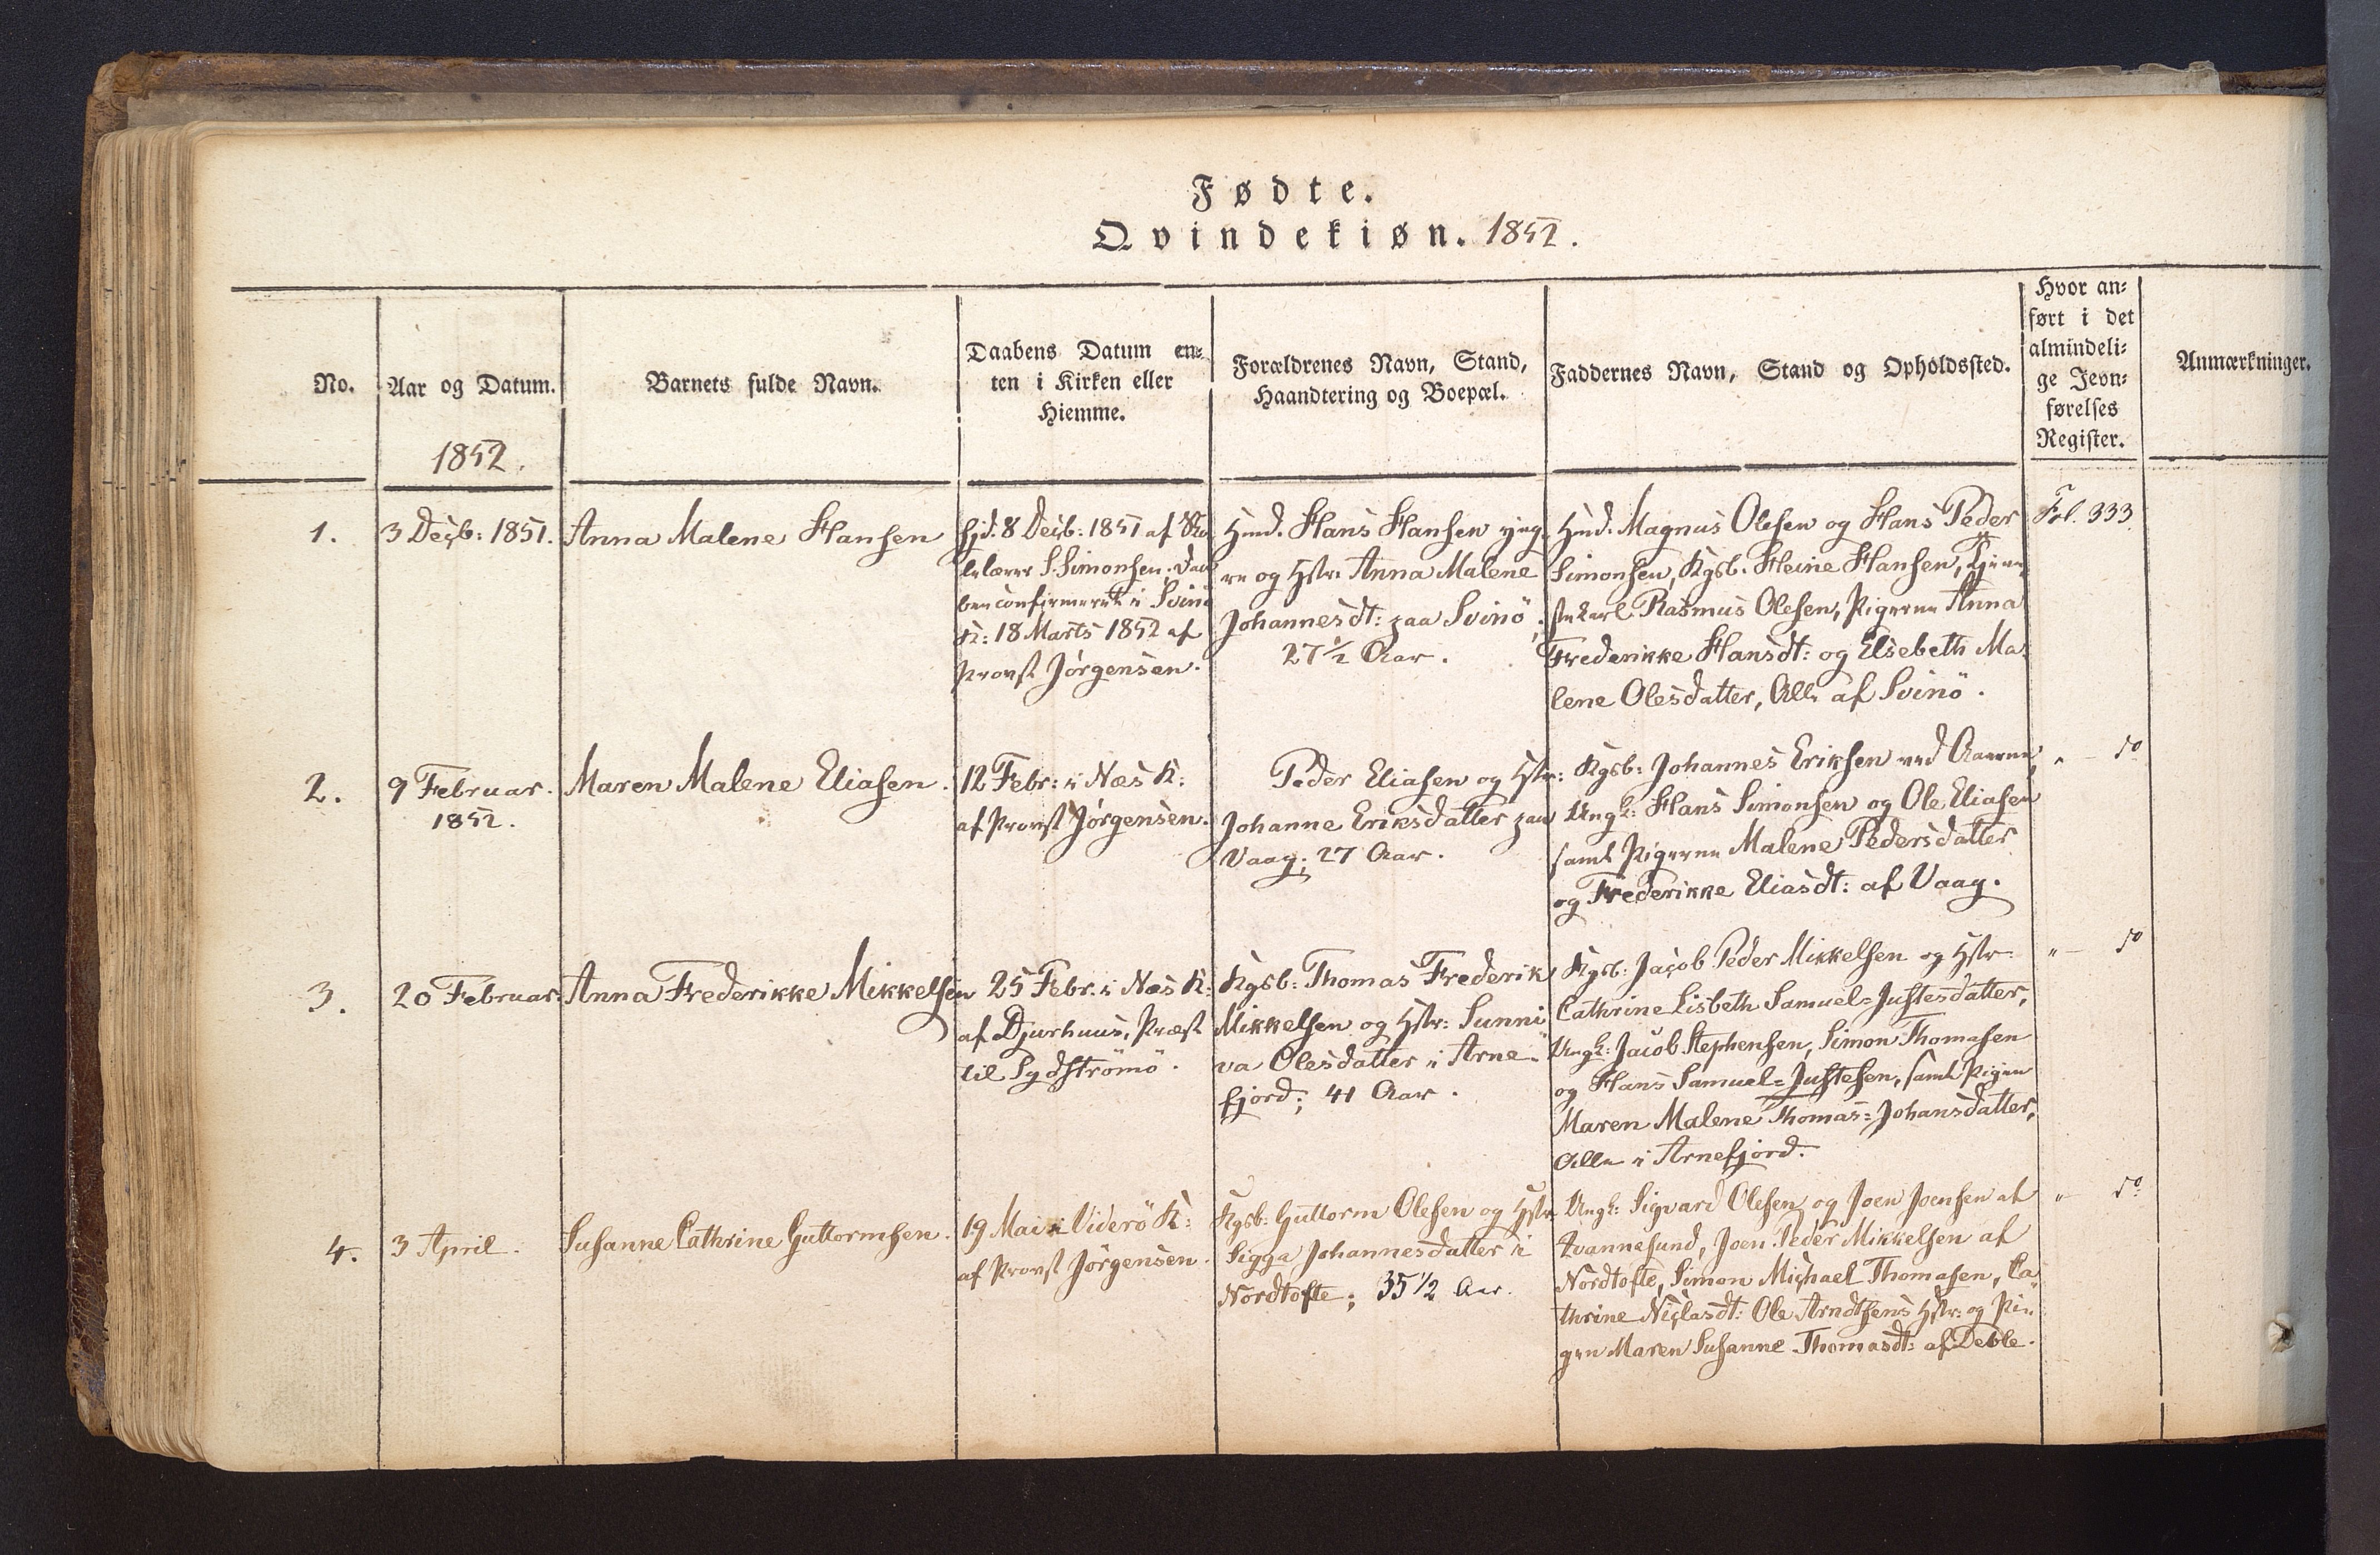 Fødte.
Qvindekiøn. 1852.
No.
Aar og Datum.
1852.
Barnets fulde Navn.
Taabens Datum en-
ten i Kirken eller
Hiemme.
Forældrenes Navn, Stand,
Haandtering og Boepæl.
Faddernes Navn, Stand og Opholdssted.
Hvor an-
ført i det
almindeli-
ge Jevn-
førelses
Register.
Anmærkninger.
1.
3 Decb: 1851.
Anna Malene Hansen
hjd. 8 Decb: 1851 af Sko
lelærer S. Simonsen. Daa
ben confirmeret i Svinö
K: 18 Marts 1852 af
Provst Jörgensen.
Huusmd. Hans Hansen yng
re og Hstr. Anna Malene
Johannesdt: paa Svinö;
27 1/2 Aar.
Huusmd. Magnus Olesen og Hans Peder
Simonsen, Kgsb. Heine Hansen, Tjene
stekarl Rasmus Olesen, Pigerne Anna
Frederikke Hansdt: og Elsebeth Ma-
lene Olesdatter, Alle af Svinö.
Fol. 333.
2.
9 Februar.
1852.
Maren Malene Eliasen.
12 Febr: i Næs K:
af Provst Jörgensen.
Peder Eliasen og Hstr:
Johanne Eriksdatter paa
Vaag; 27 Aar.
Kgsb: Johannes Eriksen ved Aaerne,
Ungk: Hans Simonsen og Ole Eliasen
samt Pigerne Malene Pedersdatter
og Frederikke Eliasdt: af Vaag.
" — do
3.
20 Februar.
Anna Frederikke Mikkelsen
25 Febr: i Næs K:
af Djurhuus, Præst
til Sydströmö.
Kgsb: Thomas Frederik
Mikkelsen og Hstr: Sunni
va Olesdatter i Arne-
fjord; 41 Aar.
Kgsb: Jacob Peder Mikkelsen og Hstr:
Cathrine Lisbeth Samuel=Justesdatter,
Ungk: Jacob Stephensen, Simon Thomasen
og Hans Samuel=Justesen, samt Pigen
Maren Malene Thomas=Johansdatter,
Alle i Arnefjord.
" — do
4.
3 April.
Susanne Cathrine Guttormsen.
19 Mai i Viderö K:
af Provst Jörgensen.
Kgsb: Guttorm Olesen og Hstr
Sigga Johannesdatter i
Nordtofte; 35 1/2 Aar.
Ungk: Sigvard Olesen og Joen Joensen af
Qvannesund, Joen Peder Mikkelsen af
Nordtofte, Simon Michael Thomasen, Ca-
thrine Niclasdt: Ole Arndtsens Hstr: og Pi-
gen Maren Susanne Thomasdt: af Deble.
" — do